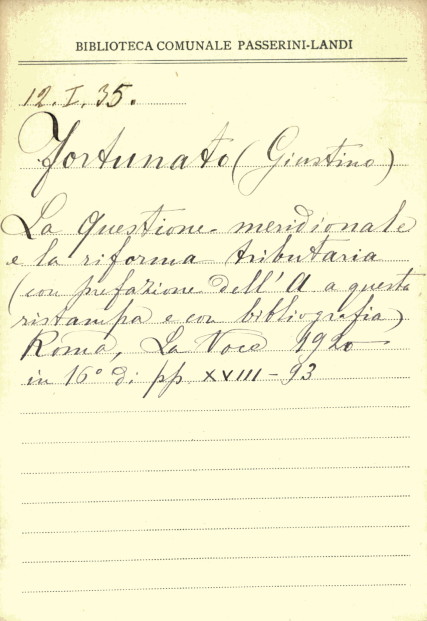 BIBLIOTECA COMUNALE PASSERINI-LANDI
12.I.35.
Fortunato (Giustino)
La questione meridionale
e la riforma tributaria
(con prefazione dell'A a questa
ristampa e con bibliografia)
Roma, La Voce 1920
in 16° di pp. XXIII-93